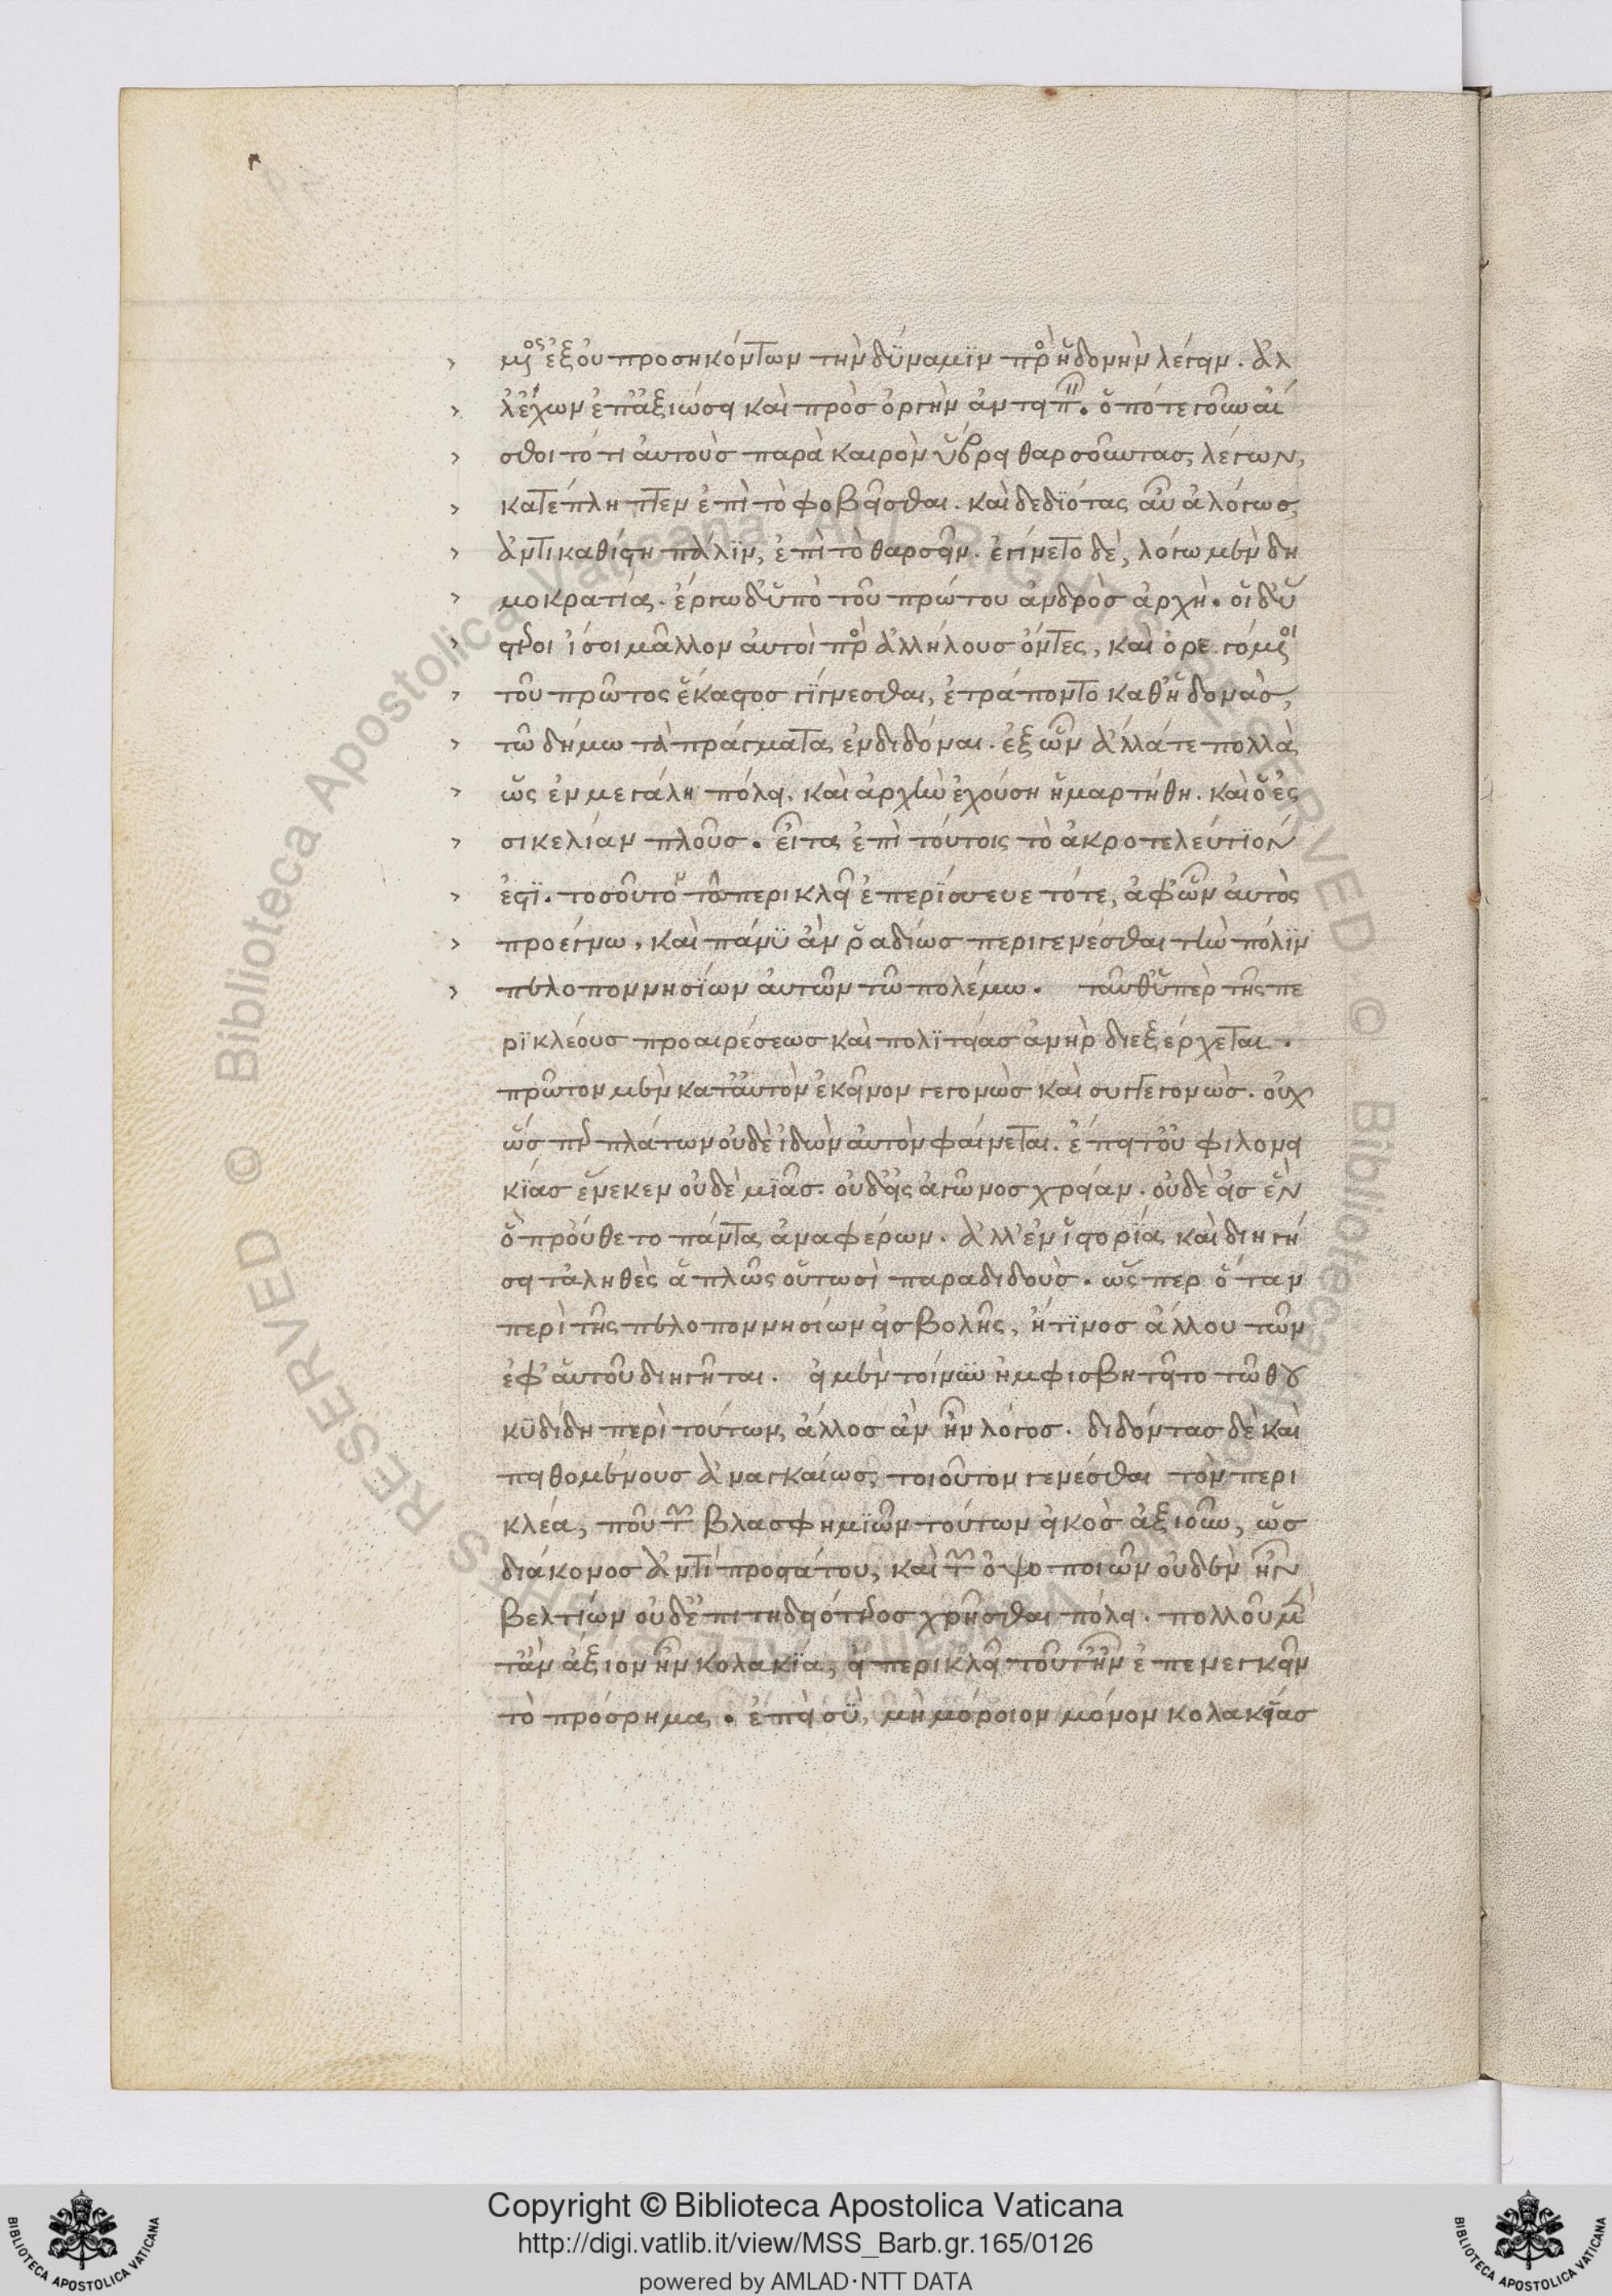 μενος ἐξ οὐ προσηκόντων τὴν δύναμιν πρὸς ἡδονὴν λέγειν. ἀλ
λ' ἔχων ἐπ' ἀξιώσει καὶ πρὸς ὀργὴν ἀντειπεῖν. ὁπότε γοῦν αἴ
σθοιτό τι αὐτοὺς παρὰ καιρὸν ὕβρει θαρσοῦντας, λέγων,
κατέπληττεν ἐπὶ τὸ φοβεῖσθαι. καὶ δεδιότας αὖ ἀλόγως,
ἀντικαθίστη πάλιν, ἐπὶ τὸ θαρσεῖν. ἐγίνετο δὲ, λόγω μὲν δη
μοκρατία. ἔργω δ' ὑπὸ τοῦ πρώτου ἀνδρὸς ἀρχή. οἱ δ' ὕ
στεροι ἴσοι μᾶλλον αὐτοὶ πρὸς ἀλλήλους ὄντες, καὶ ὀρεγόμενοι
τοῦ πρῶτος ἕκαστος γίγνεσθαι, ἐτράποντο καθ' ἡδονὰς,
τῶ δήμω τὰ πράγματα ἐνδιδόναι. ἐξ ὧν ἄλλά τε πολλὰ
ὡς ἐν μεγάλη πόλει, καὶ ἀρχὴν ἐχούση ἡμαρτήθη. καὶ ὁ ἐς
σικελίαν πλοῦς. εἶτα ἐπὶ τούτοις τὸ ἀκροτελεύτιόν
ἐστι. τοσοῦτο τῶ περικλεῖ ἐπερίσσευε τότε, ἀφ' ὧν αὐτὸς
προέγνω, καὶ πάνυ ἂν ῥαδίως περιγενέσθαι τὴν πόλιν
πελοποννησίων αὐτῶν τῶ πολέμω. ταῦθ' ὑπὲρ τῆς πε
ρικλέους προαιρέσεως καὶ πολιτείας ἀνὴρ διεξέρχεται.
πρῶτον μὲν κατ' αὐτὸν ἐκεῖνον γεγονὼς καὶ συγγεγονώς. οὐχ
ὥσπερ πλάτων οὐδὲ ἰδὼν αὐτὸν φαίνεται. ἔπειτ' οὐ φιλονει
κίας ἕνεκεν οὐδὲ μιᾶς. οὐδ' εἰς ἀγῶνος χρείαν. οὐδὲ εἰς ἓν
ὃ προὔθετο πάντα ἀναφέρων. ἀλλ' ἐν ἱστορία καὶ διηγή
σει τἀληθὲς ἁπλῶς οὑτωσὶ παραδιδούς. ὥσπερ ὅταν
περὶ τῆς πελοποννησίων εἰσβολῆς, ἤ τινος ἄλλου τῶν
ἐφ' αὑτοῦ διηγῆται. εἰ μὲν τοίνυν ἠμφισβητεῖτο τῶ θου
κυδίδη περὶ τούτων, ἄλλος ἂν ἦν λόγος. διδόντας δὲ καὶ
πειθομένους ἀναγκαίως, τοιοῦτον γενέσθαι τὸν περι
κλέα, ποῦ τῶν βλασφημιῶν τούτων εἰκὸς ἀξιοῦν, ὡς
διάκονος ἀντὶ προστάτου, καὶ τῶν ὀψοποιῶν οὐδὲν ἦν
βελτίων οὐδ' ἐπιτηδειότερος χρῆσθαι πόλει. πολλοῦ μέν
τἂν ἄξιον ἦν κολακεία, εἰ περικλεῖ τοῦτ' ἦν ἐπενεγκεῖν
τὸ πρόσρημα. ἐπεὶ σὺ, μὴ μόριον μόνον κολακείας
Copyright © Biblioteca Apostolica Vaticana
http://digi.vatlib.it/view/MSS_Barb.gr.165/0126
powered by AMLAD·NTT DATA